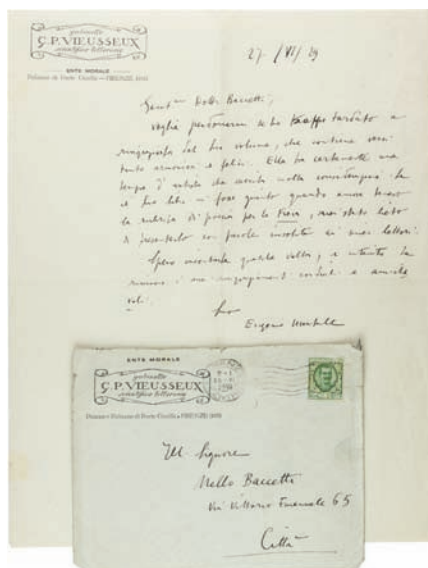 gabinetto
G. P. VIEUSSEUX
scientifico letterario
ENTE MORALE
Palazzo di Parte Guelfa — FIRENZE
27/VI/29
Gent.mo Dott. Baccetti,
voglia perdonarmi se ho troppo tardato a
ringraziarla del suo volume, che contiene versi
tanto armoniosi e felici. Ella ha certamente una
tempra d'artista che merita molta considerazione. Se
il suo libro mi fosse giunto quando ancora tenevo
la rubrica di poesia per la Fiera, sarei stato lieto
di presentarlo con parole
ai miei lettori.
Spero incontrarla qualche volta, e intanto La
i miei ringraziamenti cordiali e amiche
voli.
Suo
Eugenio Montale
ENTE MORALE
gabinetto
G. P. VIEUSSEUX
scientifico letterario
Palazzo di Parte Guelfa • FIRENZE
Ill. Signore
Nello Baccetti
Via Vittorio Emanuele 65
Città